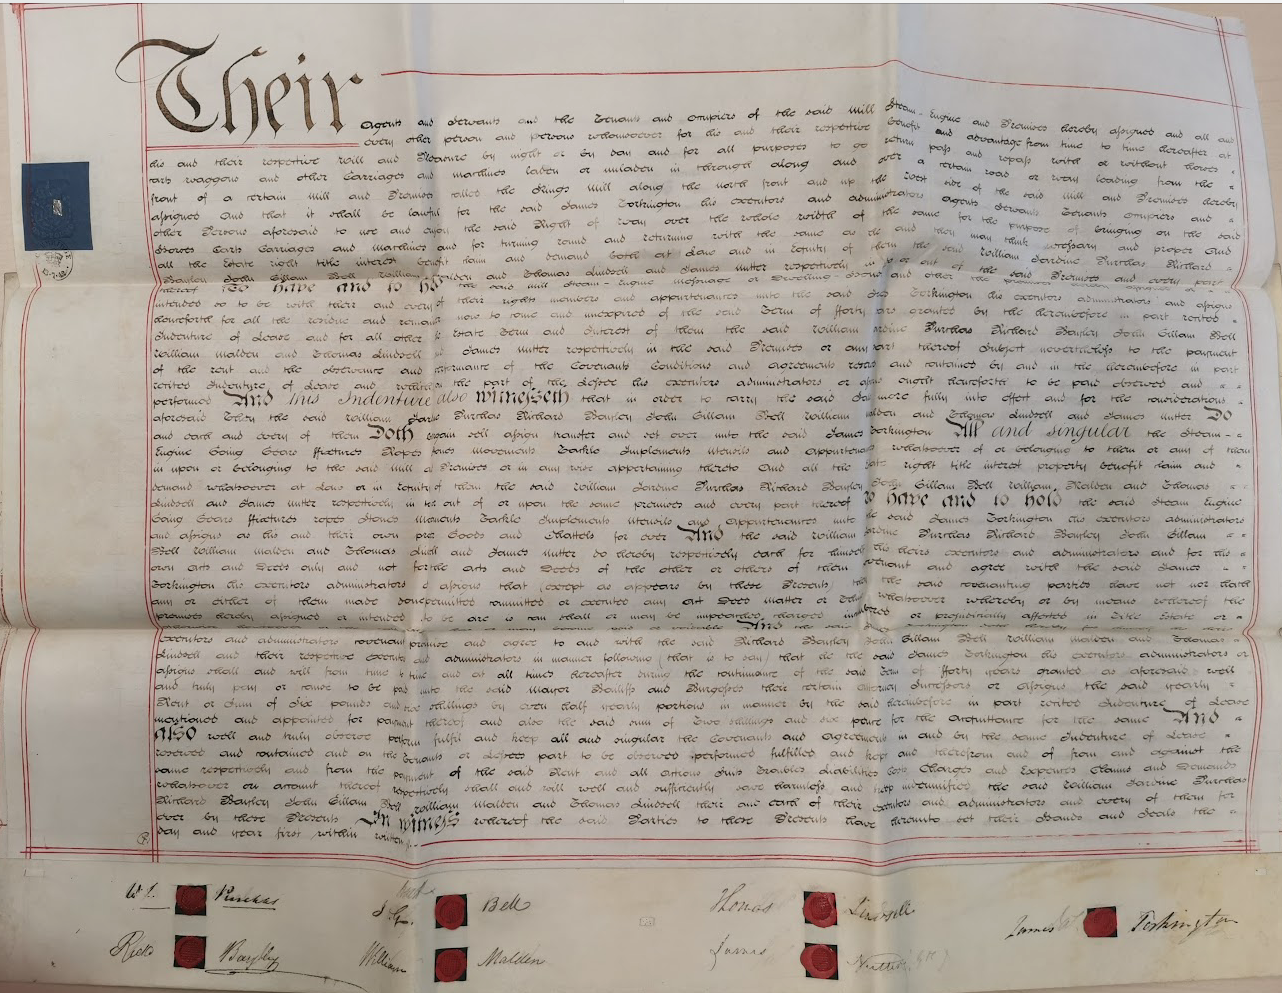 Their
Agents and Servants and the Tenants and occupiers of the said Mill Steam-Engine and Premises hereby assigned and all and
every other person and persons whomsoever for his and their respective benefit and advantage from time to time hereafter at
his and their respective will and Pleasure by night or by day and for all purposes to go return pass and repass with or without horses
carts waggons and other Carriages and machines laden or unladen in through along and over a certain road or way leading from the
front of a certain Mill and Premises called the Kings Mill along the north front and up the West side of the said Mill and Premises hereby
assigned And that it shall be lawful for the said James Torkington his executors and administrators agents servants Tenants occupiers and
other Persons aforesaid to use and enjoy the said Right of way over the whole width of the same for the purpose of bringing on the said
Horses Carts Carriages and machines and for turning round and returning with the same as he and they may think necessary and proper And
all the Estate right title interest benefit claim and demand both at Law and in equity of them the said William Jardine Purchas Richard
Bayley John Gillam Bell William Malden and Thomas Lindsell and James Nutter respectively in to or out of the said Premises and every part
thereof To have and to hold the said mill Steam-Engine messuage or Dwelling and other the premises
intended so to be with their and every of their rights members and appurtenances unto the said James Torkington his executors administrators and assigns
henceforth for all the residue and remainder now to come and unexpired of the said Term of forty years granted by the hereinbefore in part recited
Indenture of Lease and for all other the Estate Term and Interest of them the said William Jardine Purchas Richard Bayley John Gillam Bell
William Malden and Thomas Lindsell and James Nutter respectively in the said Premises or any part thereof Subject nevertheless to the payment
of the rent and the observance and performance of the Covenants Conditions and agreements reserved and contained by and in the hereinbefore in part
recited Indenture of Lease and which on the part of the Lessee his executors administrators or assigns ought henceforth to be paid observed and
performed And this Indenture also witnesseth that in order to carry the said Sale more fully into effect and for the considerations
aforesaid They the said William Jardine Purchas Richard Bayley John Gillam Bell William Malden and Thomas Lindsell and James Nutter Do
and each and every of them Doth bargain sell assign transfer and set over unto the said James Torkington All and singular the Steam-
Engine Going Gears ffixtures Ropes Stones movements Tackle Implements utensils and appurtenances whatsoever of or belonging to them or any of them
in upon or belonging to the said Mill and Premises or in any wise appertaining thereto And all the Estate right title interest property benefit claim and
demand whatsoever at Law or in equity of them the said William Jardine Purchas Richard Bayley John Gillam Bell William Malden and Thomas
Lindsell and James Nutter respectively in to out of or upon the same premises and every part thereof To have and to hold the said Steam Engine
Going Gears ffixtures ropes stones movements Tackle Implements utensils and appurtenances unto the said James Torkington his executors administrators
and assigns as his and their own proper Goods and Chattels for ever And the said William Jardine Purchas Richard Bayley John Gillam
Bell William Malden and Thomas Lindsell and James Nutter do hereby respectively each for himself his heirs executors and administrators and for his
own acts and Deeds only and not for the acts and Deeds of the other or others of them covenant and agree with the said James
Torkington his executors administrators and assigns that (except as appears by these Presents) they the said covenanting parties have not nor hath
any or either of them made done permitted committed or executed any act Deed matter or Thing whatsoever whereby or by means whereof the
premises hereby assigned or intended so to be are is can shall or may be impeached charged incumbered or prejudicially affected in title Estate or
And the said
executors and administrators covenant promise and agree to and with the said Richard Bayley John Gillam Bell William Malden and Thomas
Lindsell and their respective executors and administrators in manner following (that is to say) that he the said James Torkington his executors administrators or
assigns shall and will from time to time and at all times hereafter during the continuance of the said Term of fforty years granted as aforesaid well
and truly pay or cause to be paid unto the said Mayor Bailiffs and Burgesses their certain attorney Successors or assigns the said yearly
Rent or Sum of Six pounds and shillings by even half yearly portions in manner by the said hereinbefore in part recited Indenture of Lease
mentioned and appointed for payment thereof and also the said sum of Two shillings and six pence for the Acquittance for the same And
also well and truly observe perform fulfil and keep all and singular the Covenants and Agreements in and by the same Indenture of Lease
reserved and contained and on the Tenants or Lessees part to be observed performed fulfilled and kept and therefrom and of from and against the
same respectively and from the payment of the said Rent and all actions Suits Troubles Liabilities Costs Charges and Expences Claims and Demands
whatsoever on account thereof respectively shall and will well and sufficiently save harmless and keep indemnified the said William Jardine Purchas
Richard Bayley John Gillam Bell William Malden and Thomas Lindsell their and each of their executors and administrators and every of them for
ever by these Presents In witness whereof the said Parties to these Presents have hereunto set their Hands and Seals the
day and year first within written
W J. Purchas
Bell
Thomas Lindsell
James Torkington
Richd Bayley
William Malden
James Nutter